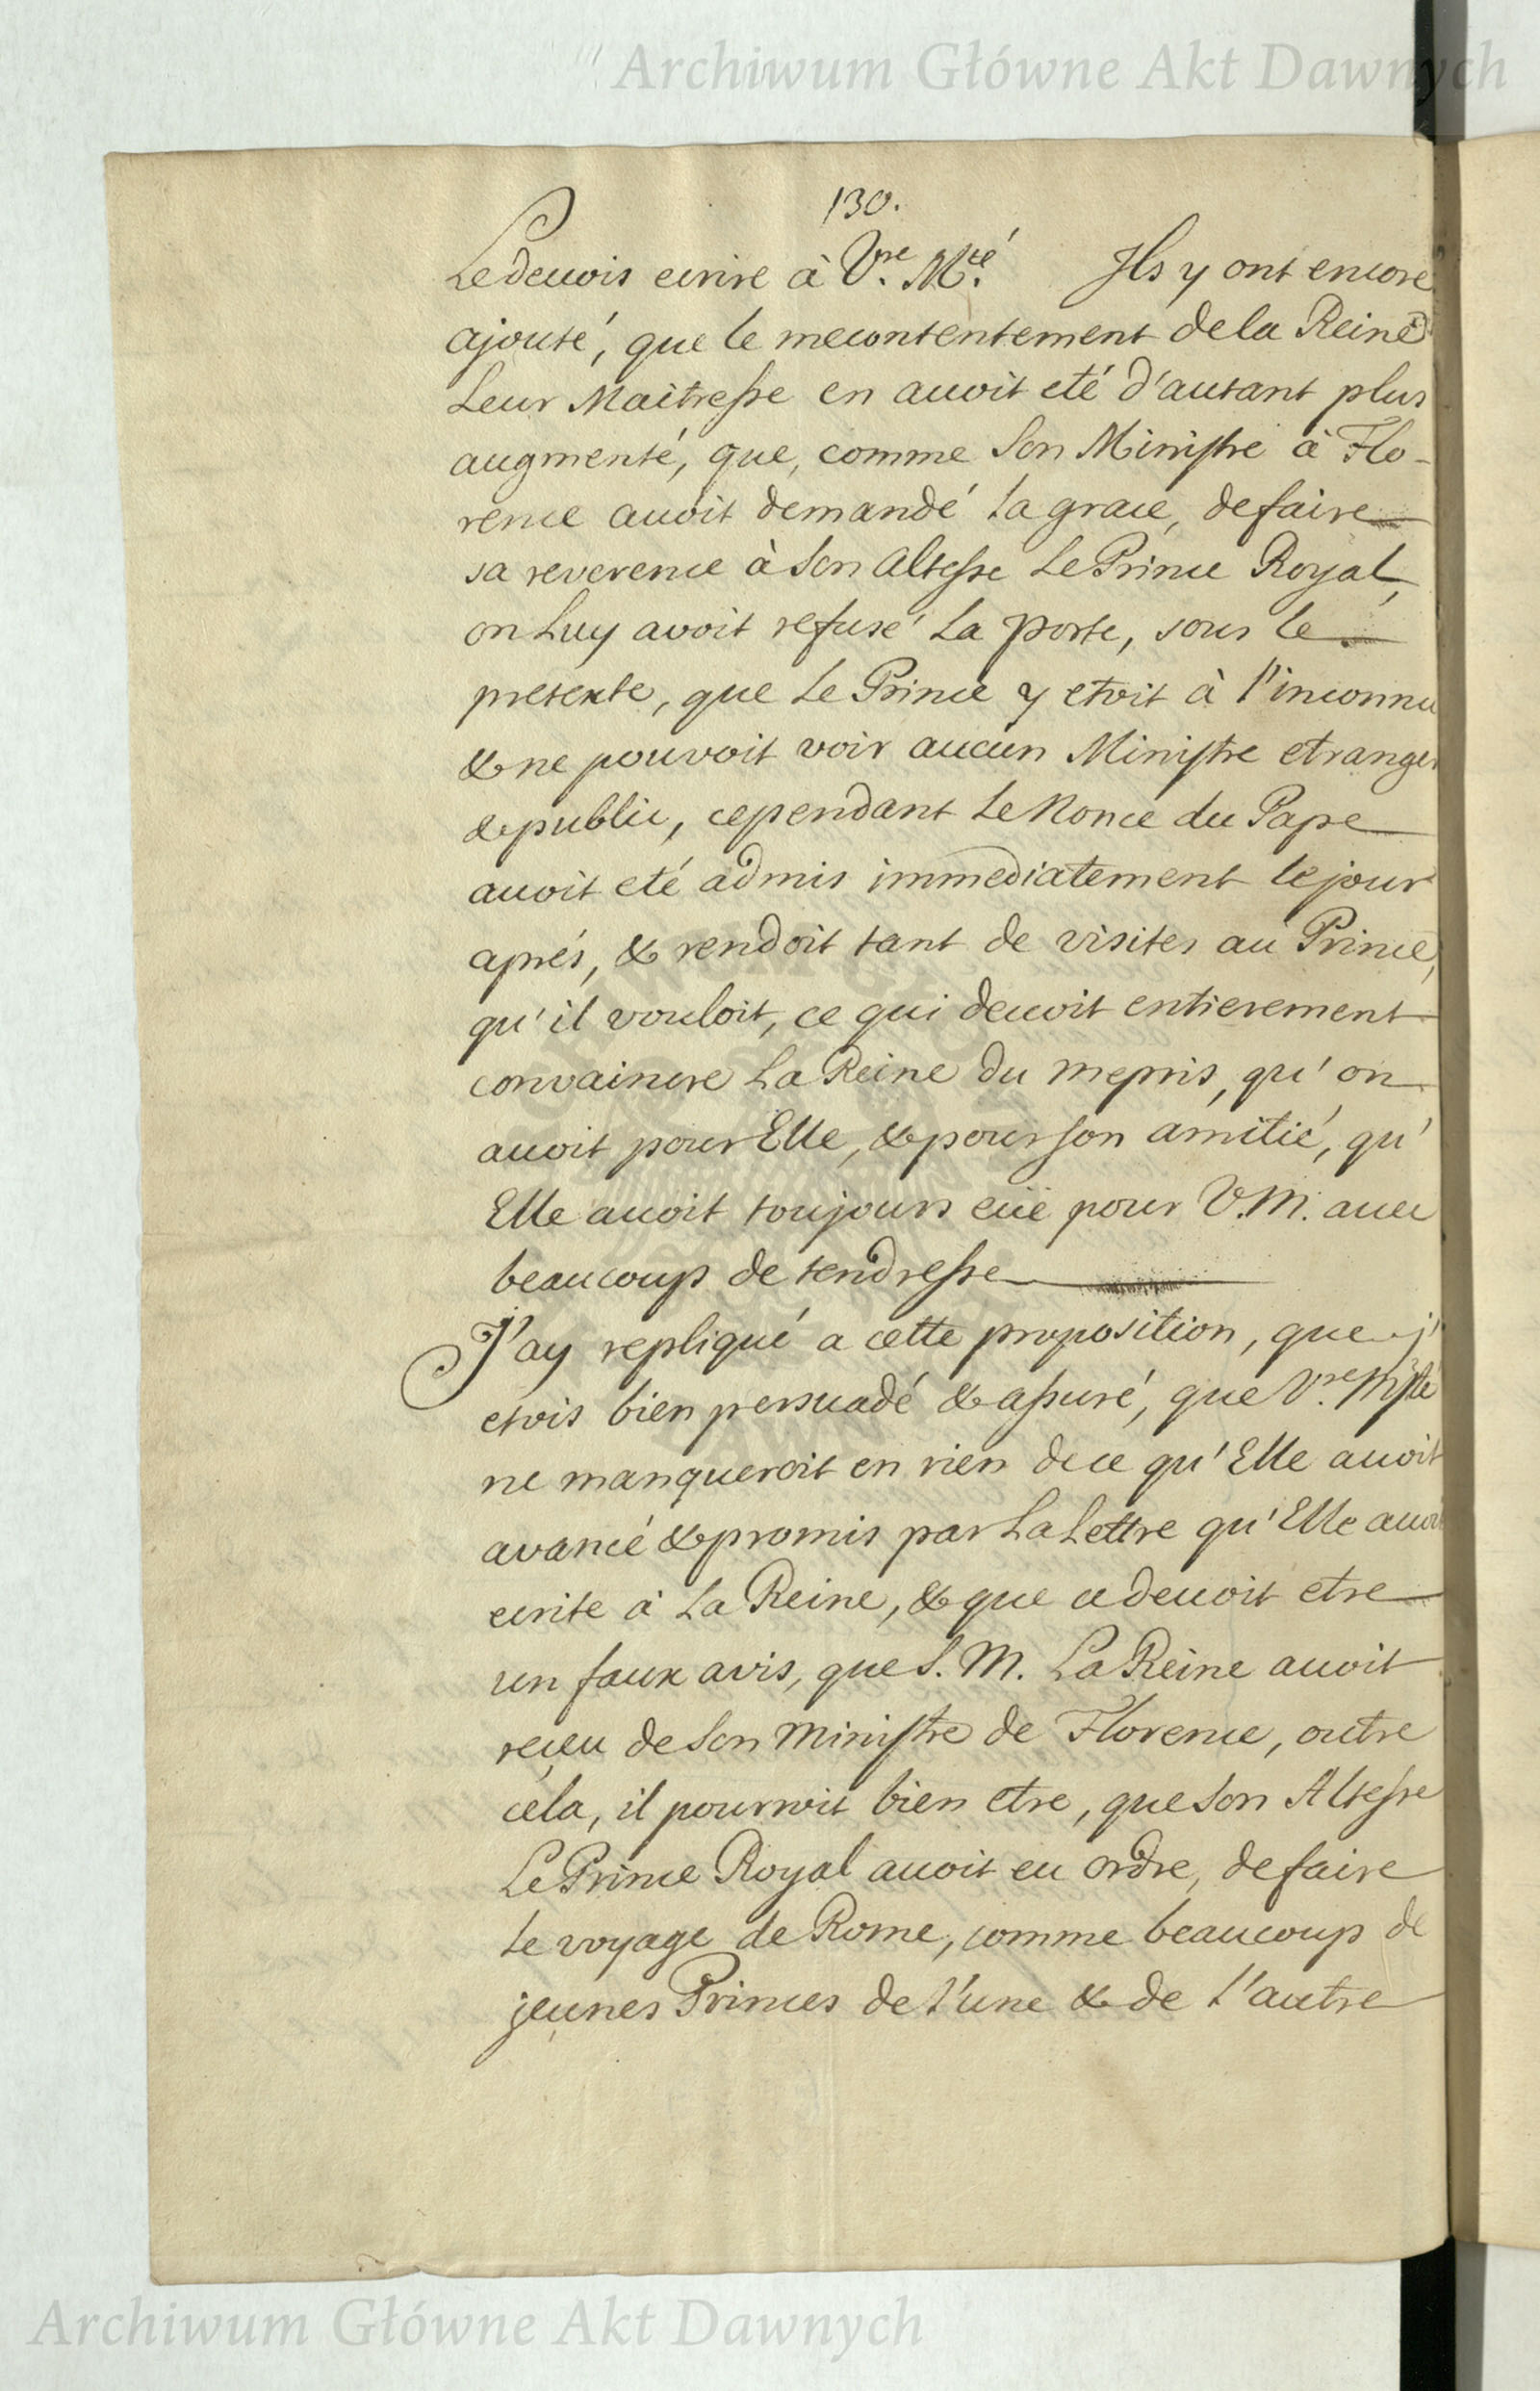 Archiwum Główne Akt Dawnych
130.
Le deuois ecrire à Vre. Mté. Ils y ont encore
ajouté, que le mecontentement de la Reine
Leur Maitresse en auoit eté d'autant plus
augmenté, que, comme Son Ministre à Flo-
rence auoit demandé la grace, de faire
sa reverence à Son Altesse Le Prince Royal,
on Luy avoit refusé La porte, sous le
pretexte, que Le Prince y etoit à l'inconnu
& ne pouvoit voir aucun Ministre etranger
& public, cependant Le Nonce du Pape
auoit eté admis immediatement le jour
aprés, & rendoit tant de visites au Prince,
qu'il vouloit, ce qui deuoit entierement
convaincre La Reine du mepris, qu'on
auoit pour Elle, & pour son amitié, qu'
Elle auoit toujours eüe pour V.M. auec
beaucoup de tendresse
J'ay repliqué a cette proposition, que j'
etois bien persuadé & assuré, que Vre. Mste
ne manqueroit en rien de ce qu'Elle auoit
avancé & promis par La Lettre qu'Elle auoit
ecrite à La Reine, & que ce deuoit etre
un faux avis, que S. M. La Reine auoit
reçeu de Son Ministre de Florence, outre
cela, il pourroit bien etre, que Son Altesse
Le Prince Royal auoit eu ordre, de faire
le voyage de Rome, comme beaucoup de
jeunes Princes de l'une & de l'autre
Archiwum Główne Akt Dawnych